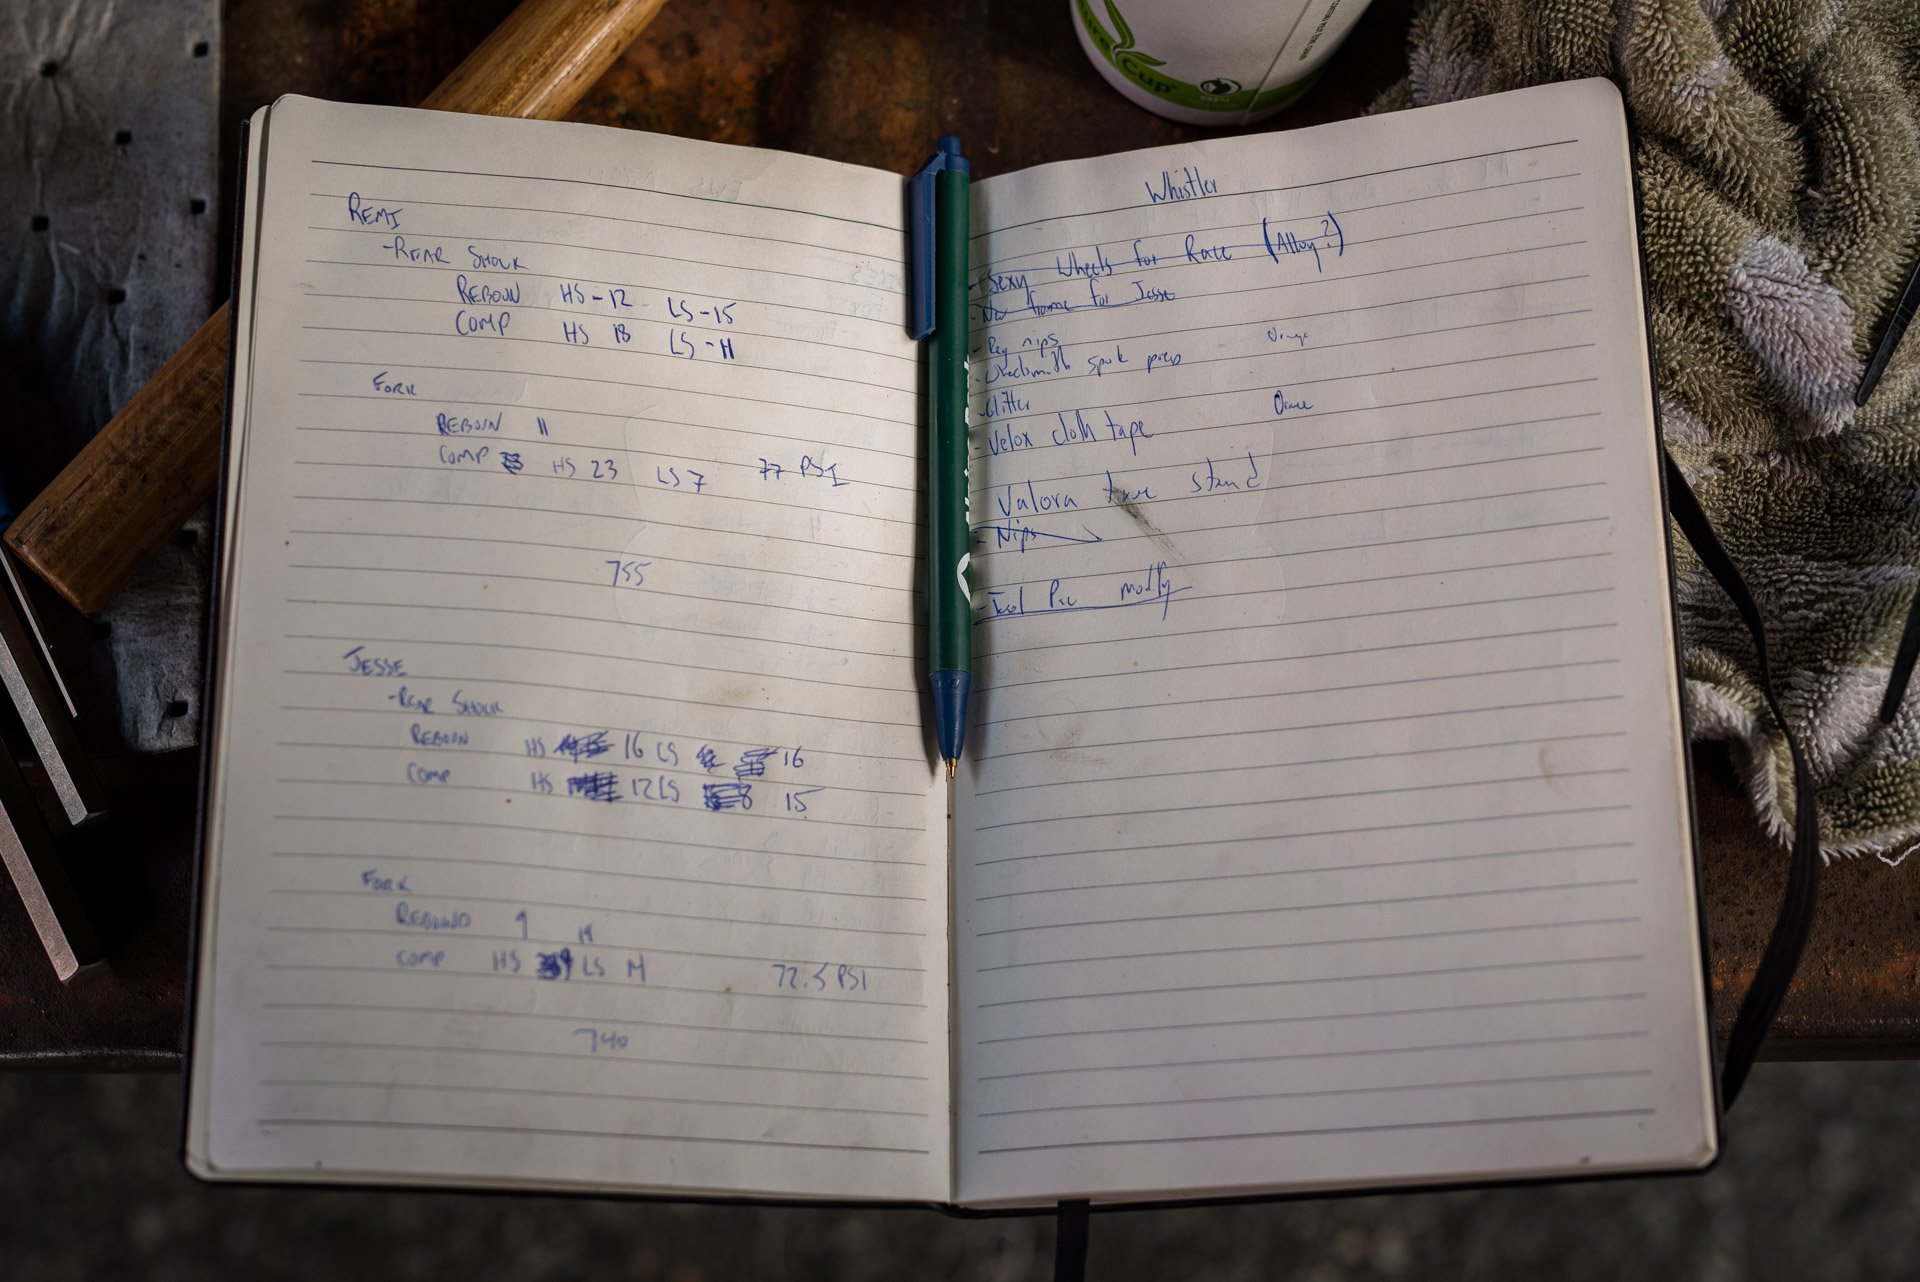 REMI
-REAR SHOCK
REBOUN HS-12 LS-15
COMP HS 18 LS-11
FORK
REBOUN 11
COMP HS 23 LS 7 77 PSI
755
JESSE
-REAR SHOCK
REBOUN HS 16 LS 16
COMP HS 12 LS 8 15
FORK
REBOUND 9
COMP HS 9 LS 72.5 PSI
740
Whistler
-Sexy Wheels for Race (Alloy?)
-New frame for Jesse
- Reg nips
-Wheelsmith spoke prep
-Glitter
-Velox cloth tape
Valora true stand
- Nips
-Tool modify
Cup